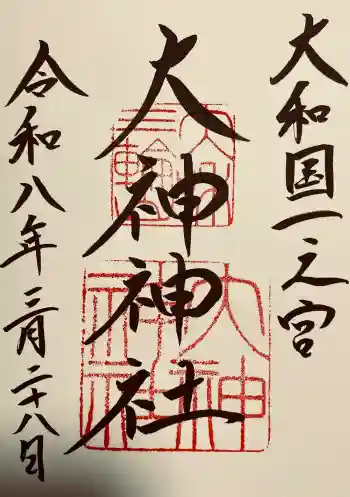 大和国一之宮
大神神社
令和八年三月二十八日
三輪
大神
神社